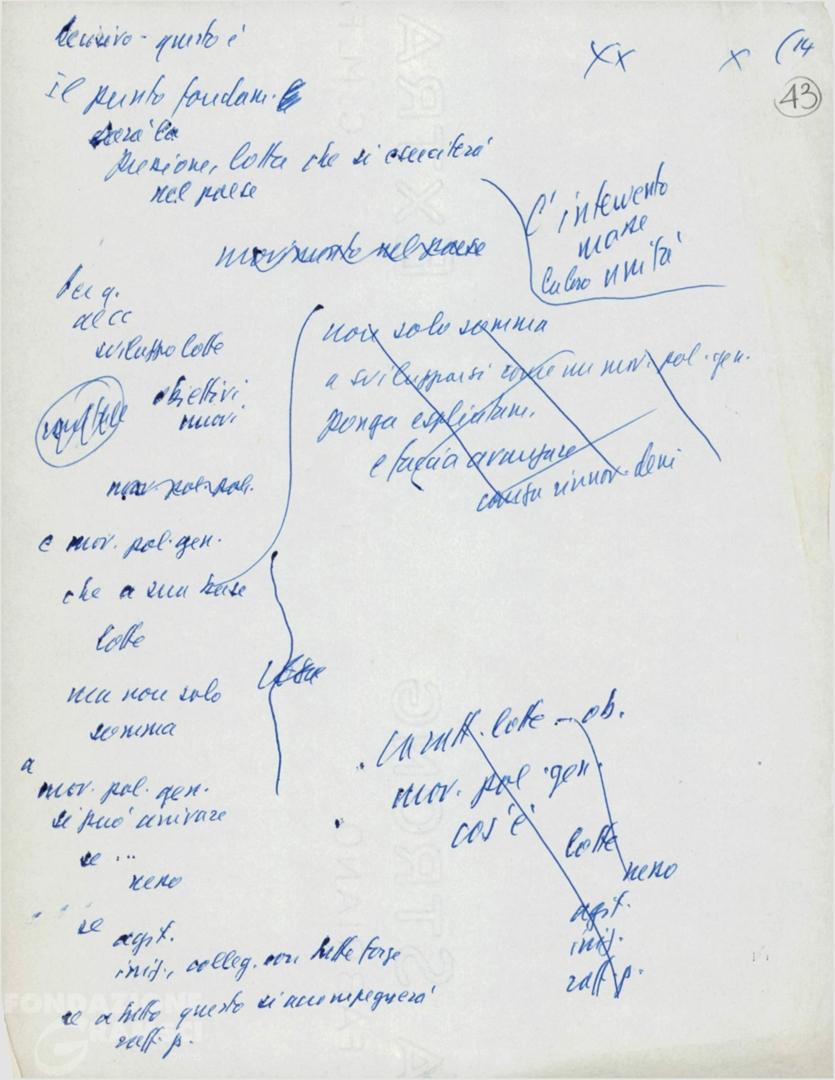 decisivo - questo è
xx x (14
43
Il punto fondam.
sarà la
pressione, lotta che si eserciterà
nel paese
L'intervento
masse
la loro unità
movimento nel paese
Per q.
al CC
sviluppo lotte
obiettivi
nuovi
mov. pol. pol.
e mov. pol. gen.
che a sua base
lotte
ma non solo
somma
a
mov. pol. gen.
si può arrivare
se ...
nesso
se
agit.
iniz., colleg. con tutte forze
se a tutto questo si accompagnerà
raff. p.
non solo somma
a svilupparsi come un mov. pol. gen.
ponga esplicitam.
e faccia avanzare
rinnov. dem
lotte - ob.
mov. pol. gen.
cos'è
lotte
nesso
agit.
iniz.
raff. p.
FONDAZIONE
Gramsci